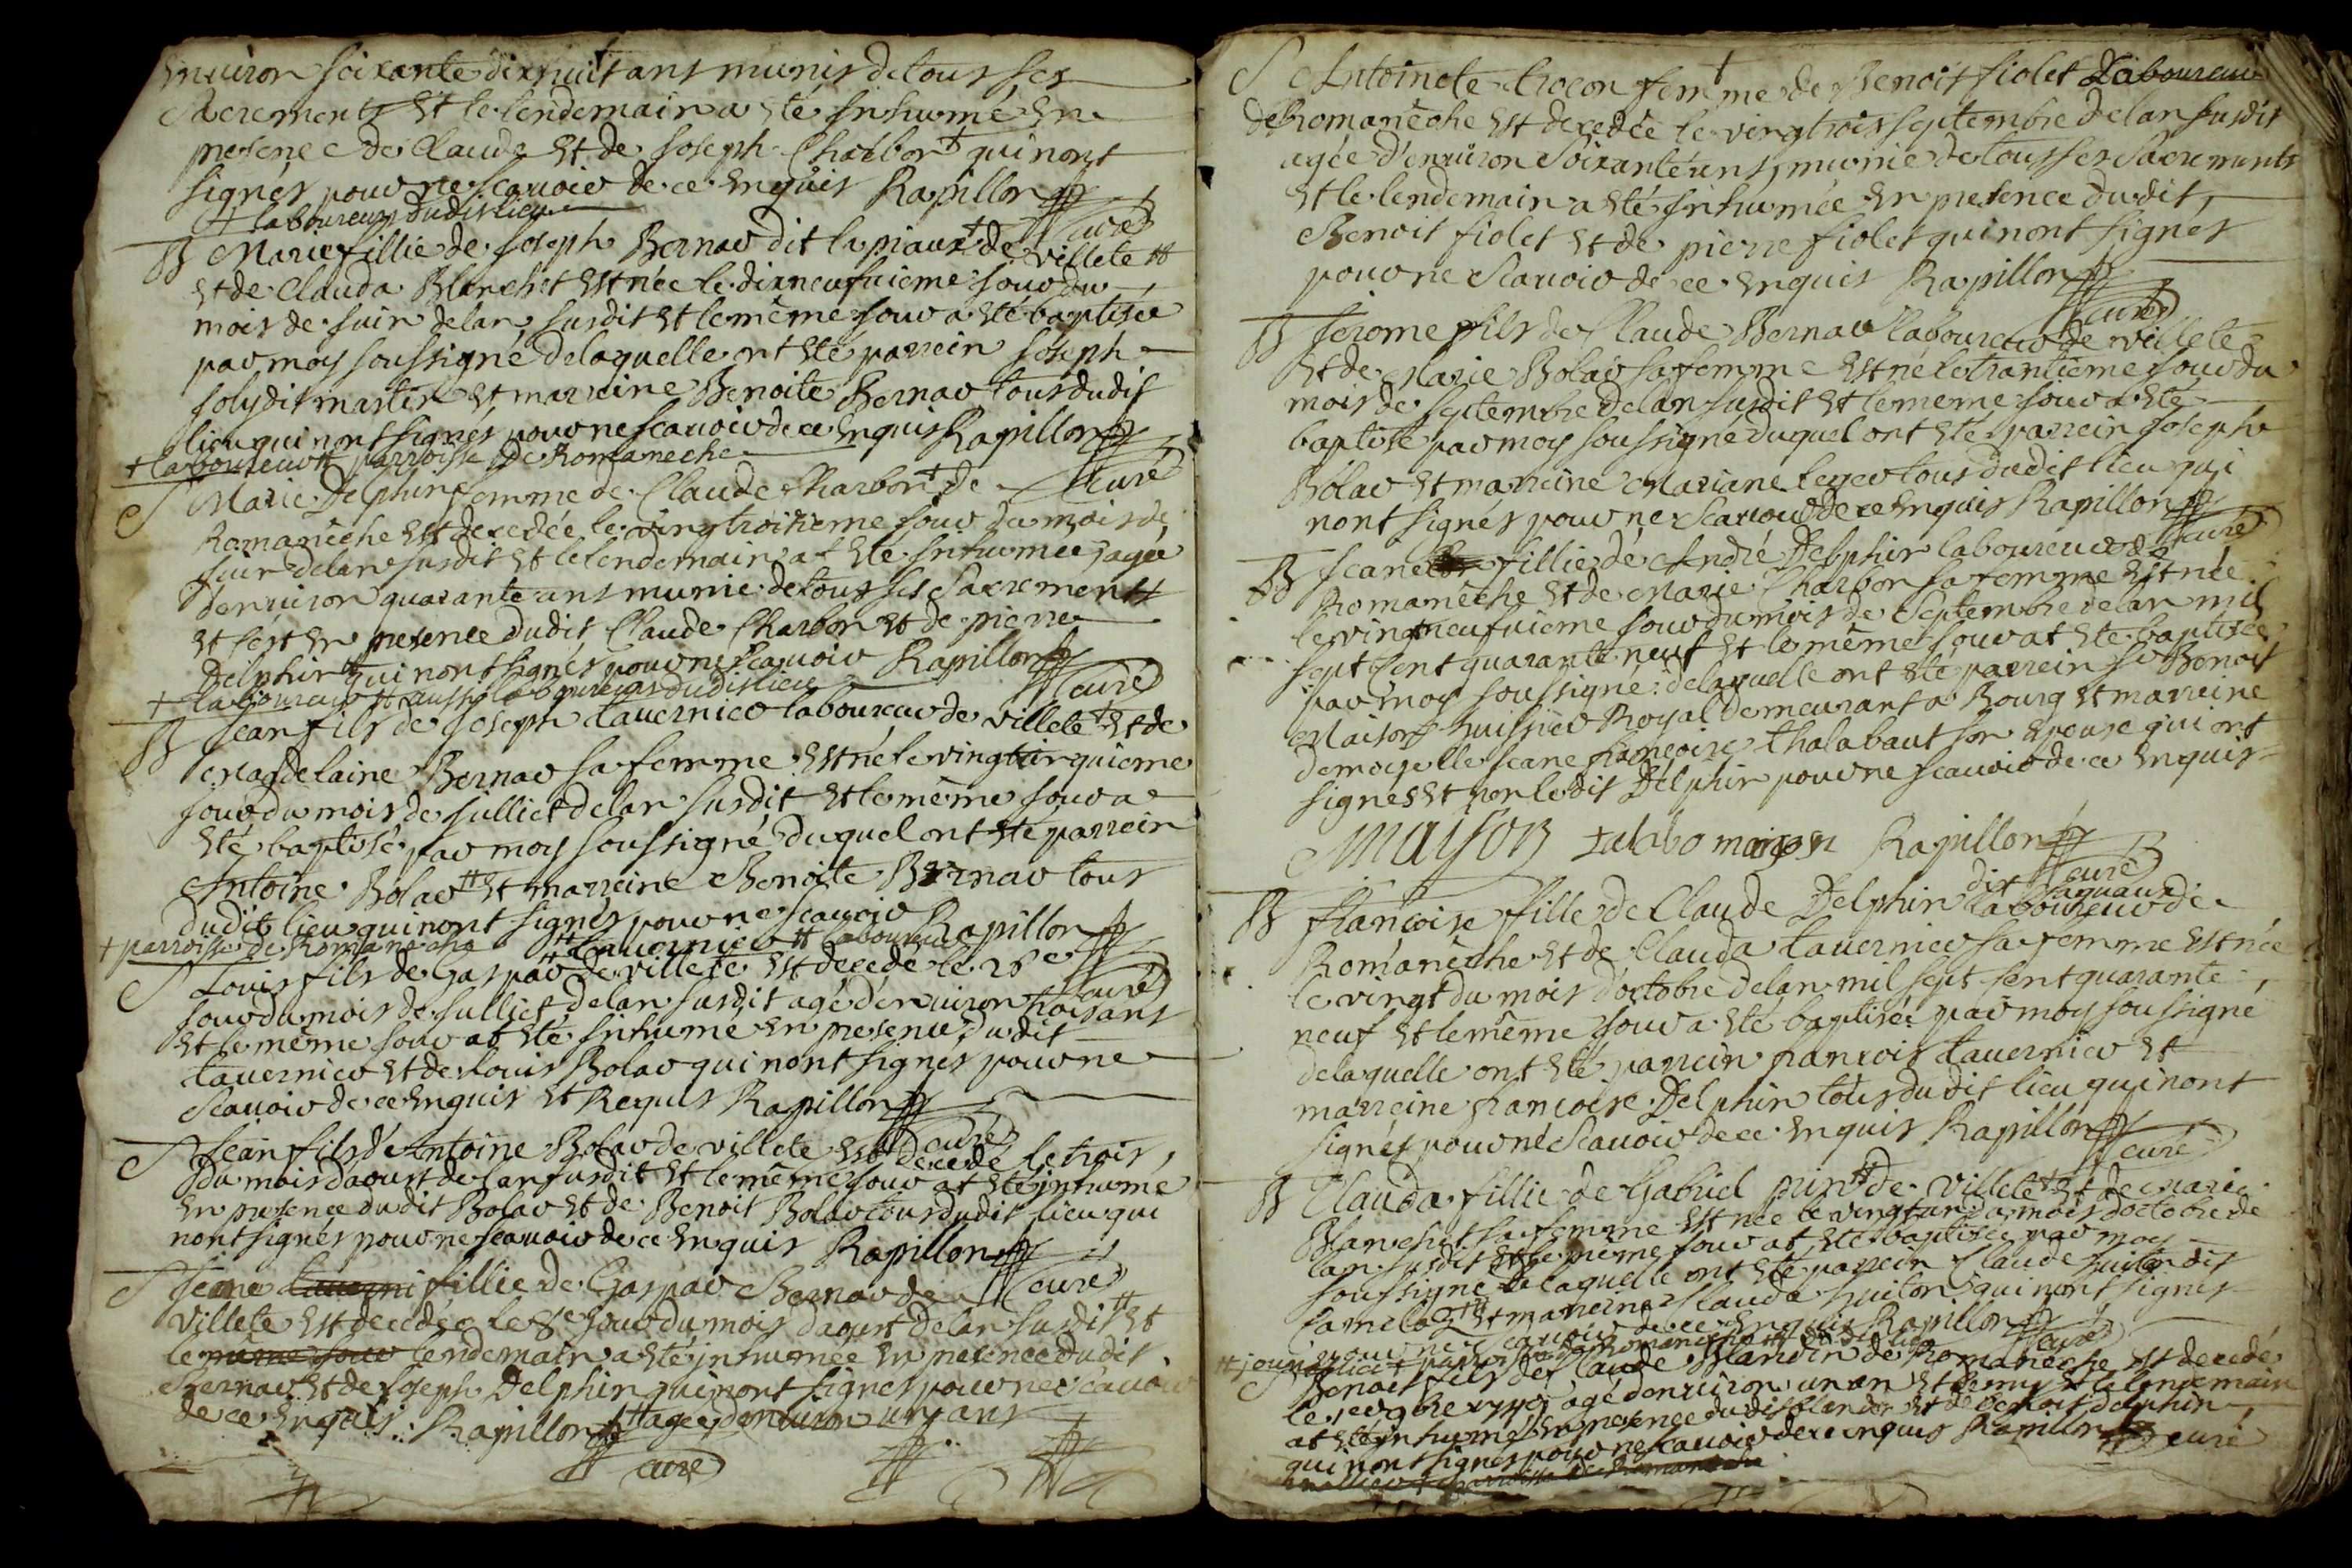 environ soixante dixhuit ans munis de tous ses
sacrements et le lendemain a été inhumé en
presence de Claude et de joseph Charbon † qui nont
signés pour ne scavoir de ce enquis Rapillon
† laboureurs dudit lieu curé
B Marie fillie de joseph Bernar dit lapiaux † de villete #
et de Clauda Blanchet est née le dixneufuieme jour du
mois de juin de lan susdit et le même jour a été baptisée
par moy soussigné de laquelle ont été parrein joseph
joly dit martin et marreine Benoite Bernar tous dudit
lieu qui nont signés pour ne scavoir de ce enquis Rapillon
† laboureur # parroisse de Romaneche curé
S Marie Delphin femme de Claude Charbon † de
Romanêche est decedée le vingtroisieme jour du mois de
juin de lan susdit et le lendemain at été inhumée agée
denuiron quarante ans munie de tous ses sacrements
et ce en presence dudit Claude Charbon et de pierre
Delphin # qui nont signés pour ne scavoir Rapillon
† laboureur # aussy laboureur dudit lieu curé
B Jean fils de joseph tauernier laboureur de villete † et de
Magdelaine Bernar sa femme est né le vingtcinquieme
jour du mois de julliet de lan susdit et le même jour a
été baptisé par moy soussigné duquel ont été parrein
Antoine Bolar # et marreine Benoite Bernar tous
dudit lieu qui nont signés pour ne scavoir Rapillon
† parroisse de Romaneche # tauernier # laboureur curé
S Louis fils de Gaspar # de villete est decedé le 26e
jour du mois de julliet de lan susdit agé denuiron trois ans
et le même jour at été inhumé en presence dudit
tauernier et de Louis Bolar qui nont signés pour ne
scauoir de ce enquis et Requis Rapillon
curé
S Jean fils de Antoine Bolar de villete est decedé le trois
du mois daoust de lan susdit et le même jour at été inhumé
en presence dudit Bolar et de Benoit Bolar tous dudit lieu qui
nont signés pour ne scauoir de ce enquis Rapillon
curé
S Jeane fillie de Gaspar Bernar de
villete est decedée le 8e jour du mois daoust de lan susdit # et
le même jour lendemain a été inhumée en presence dudit
Bernar et de joseph Delphin qui nont signés pour ne scavoir
de ce enquis Rapillon # agée denuiron un ans
curé
S Antoinete trocon femme de Benoit fiolet † Laboureur
de Romanêche est decedée le vingtrois septembre de lan susdit
agée d'enuiron soixante ans, munie de tous ses sacrements
et le lendemain a été inhumée en presence dudit
Benoit fiolet et de pierre fiolet qui nont signés
pour ne scauoir de ce enquis Rapillon
curé
B Jerome fils de Claude Bernar laboureur de villete
et de Marie Bolar sa femme est né le trantieme jour du
mois de septembre de lan susdit et le meme jour a été
baptisé par moy soussigné duquel ont été parrein joseph
Bolar et marreine Mariane leger tous dudit lieu qui
nont signés pour ne scauoir de ce enquis Rapillon
curé
B Jeane fillie de André Delphin laboureur de
Romanêche et de Marie Charbon sa femme est née
le vingtneufuieme jour du mois de septembre de lan mil
sept cent quarante neuf et le même jour at été baptisée
par moy soussigné de laquelle ont été parrein sr Benoit
Maison huissier Royal demeurant a Bourg et marreine
demoyselle jeane françoise thalabaut son epouse qui ont
signés et non ledit Delphin pour ne scauoir de ce enquis
Maison maison Rapillon
curé
dit laquaux
B françoise fille de Claude Delphin laboureur de
Romanêche et de Clauda tauernier sa femme est née
le vingt du mois d'octobre de lan mil sept cent quarante
neuf et le même jour a été baptisée par moy soussigné
de laquelle ont été parrein francois tauernier et
marreine françoise Delphin tous dudit lieu qui nont
signés pour ne scauoir de ce enquis Rapillon
curé
B Clauda fillie de Gabriel # de villete † et de Marie
Blanchet sa femme est née le vingt un du mois doctobre de
lan susdit et le même jour at été baptisée par moy
soussigné de laquelle ont été parrein Claude huiton dit
et marreine Clauda huiton qui nont signés
pour ne scauoir de ce enquis Rapillon
curé
S Benoit fils de Claude Blandin de Romanêche est decedé
le agé denuiron un an et demy et le lendemain
at été inhumé en presence dudit Blandin et de Benoit dauphin
qui nont signés pour ne scauoir de ce enquis Rapillon curé
parroisse de Romaneche